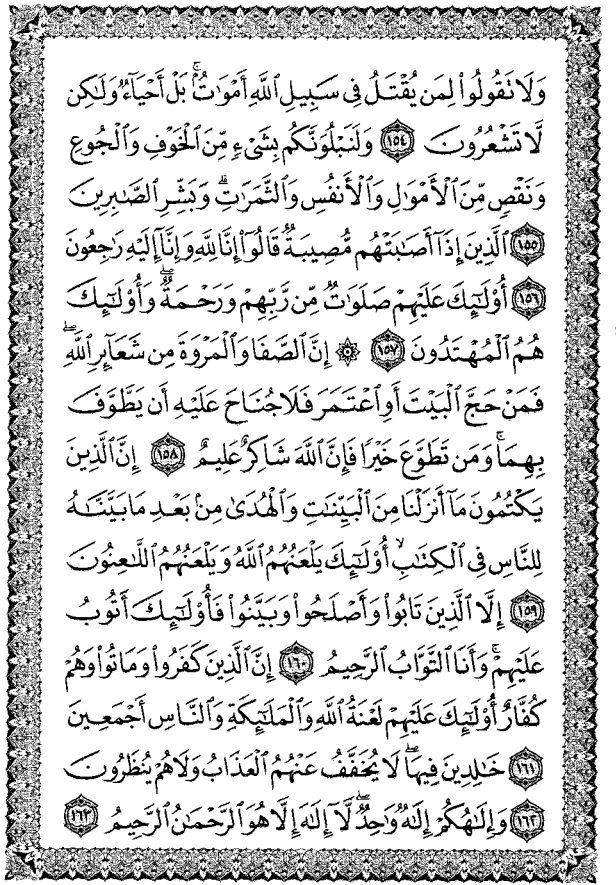 وَلَا تَقُولُوا۟ لِمَن يُقْتَلُ فِى سَبِيلِ ٱللَّهِ أَمْوَٰتٌۢ ۚ بَلْ أَحْيَآءٌ وَلَـٰكِن
لَّا تَشْعُرُونَ ١٥٤ وَلَنَبْلُوَنَّكُم بِشَىْءٍ مِّنَ ٱلْخَوْفِ وَٱلْجُوعِ
وَنَقْصٍ مِّنَ ٱلْأَمْوَٰلِ وَٱلْأَنفُسِ وَٱلثَّمَرَٰتِ ۗ وَبَشِّرِ ٱلصَّـٰبِرِينَ
١٥٥ ٱلَّذِينَ إِذَآ أَصَـٰبَتْهُم مُّصِيبَةٌ قَالُوٓا۟ إِنَّا لِلَّهِ وَإِنَّآ إِلَيْهِ رَٰجِعُونَ
١٥٦ أُو۟لَـٰٓئِكَ عَلَيْهِمْ صَلَوَٰتٌ مِّن رَّبِّهِمْ وَرَحْمَةٌ ۖ وَأُو۟لَـٰٓئِكَ
هُمُ ٱلْمُهْتَدُونَ ١٥٧ ۞ إِنَّ ٱلصَّفَا وَٱلْمَرْوَةَ مِن شَعَآئِرِ ٱللَّهِ ۖ
فَمَنْ حَجَّ ٱلْبَيْتَ أَوِ ٱعْتَمَرَ فَلَا جُنَاحَ عَلَيْهِ أَن يَطَّوَّفَ
بِهِمَا ۚ وَمَن تَطَوَّعَ خَيْرًا فَإِنَّ ٱللَّهَ شَاكِرٌ عَلِيمٌ ١٥٨ إِنَّ ٱلَّذِينَ
يَكْتُمُونَ مَآ أَنزَلْنَا مِنَ ٱلْبَيِّنَـٰتِ وَٱلْهُدَىٰ مِنۢ بَعْدِ مَا بَيَّنَّـٰهُ
لِلنَّاسِ فِى ٱلْكِتَـٰبِ ۙ أُو۟لَـٰٓئِكَ يَلْعَنُهُمُ ٱللَّهُ وَيَلْعَنُهُمُ ٱللَّـٰعِنُونَ
١٥٩ إِلَّا ٱلَّذِينَ تَابُوا۟ وَأَصْلَحُوا۟ وَبَيَّنُوا۟ فَأُو۟لَـٰٓئِكَ أَتُوبُ
عَلَيْهِمْ ۚ وَأَنَا ٱلتَّوَّابُ ٱلرَّحِيمُ ١٦٠ إِنَّ ٱلَّذِينَ كَفَرُوا۟ وَمَاتُوا۟ وَهُمْ
كُفَّارٌ أُو۟لَـٰٓئِكَ عَلَيْهِمْ لَعْنَةُ ٱللَّهِ وَٱلْمَلَـٰٓئِكَةِ وَٱلنَّاسِ أَجْمَعِينَ
١٦١ خَـٰلِدِينَ فِيهَا ۖ لَا يُخَفَّفُ عَنْهُمُ ٱلْعَذَابُ وَلَا هُمْ يُنظَرُونَ
١٦٢ وَإِلَـٰهُكُمْ إِلَـٰهٌ وَٰحِدٌ ۖ لَّآ إِلَـٰهَ إِلَّا هُوَ ٱلرَّحْمَـٰنُ ٱلرَّحِيمُ ١٦٣